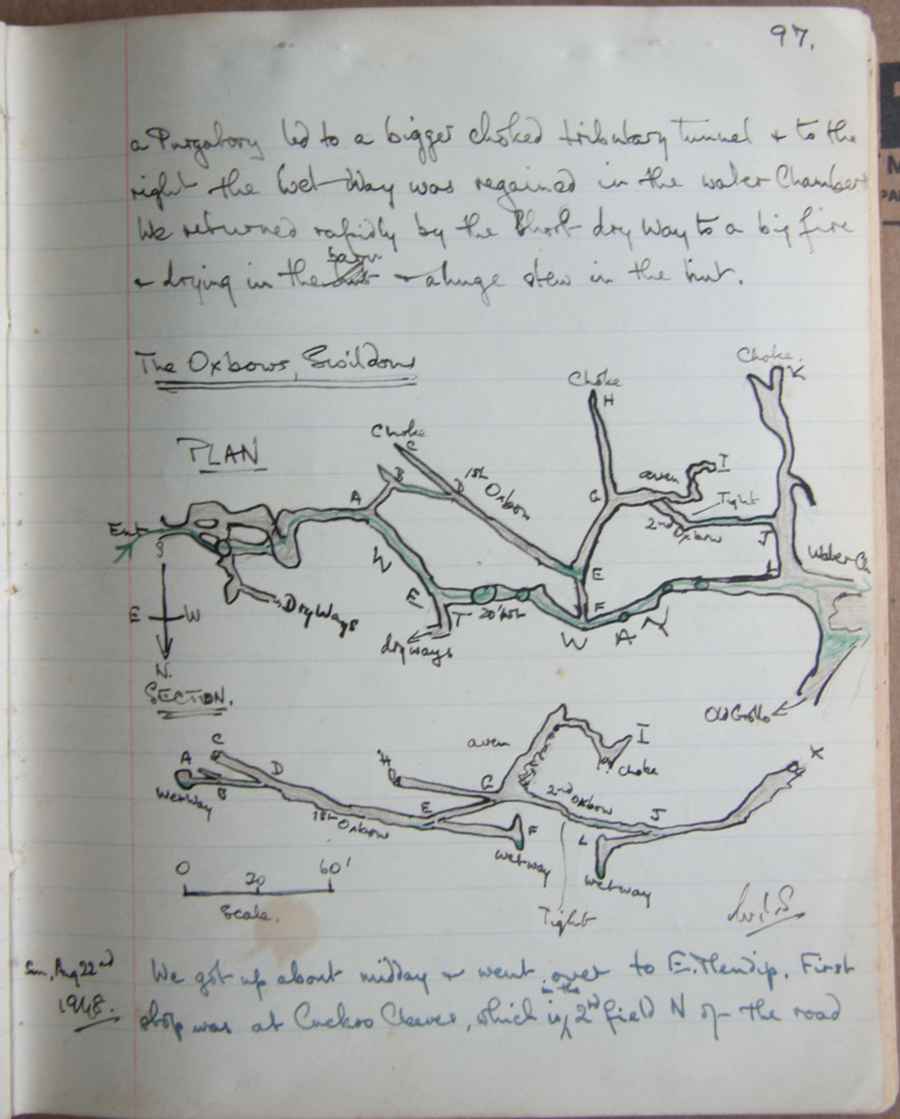 97.
a Purgatory led to a bigger choked tributary tunnel & to the
right the Wet-Way was regained in the water Chamber
We returned rapidly by the short dry way to a big fire
& drying in the barn & a huge stew in the hut.
The Oxbows, Swildons
PLAN
Choke
Choke.
Choke
K
H
C
B
D
1st Oxbow
A
G
aven
I
Tight
2nd Oxbow
J
Ent
S
W
E
E
L
Water Ch
F
T
20' 15t
dry ways
Dry Ways
W A Y
E W
N.
SECTION.
Old Grotto
C
A
B
D
Wet Way
1st Oxbow
H
E
G
aven
I
choke
2nd Oxbow
J
K
F
wet way
L
wet way
Tight
0 30 60'
Scale.
Sun, Aug 22nd
1948.
We got up about midday & went over to E. Mendip. First
stop was at Cuckoo Cleeves, which is in the 2nd field N of the road